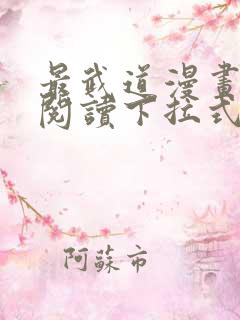 最武道漫畫
閱讀下拉式
阿蘇市